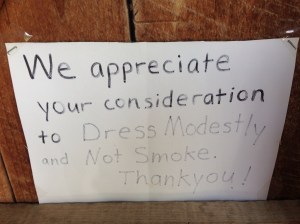 We appreciate
your consideration
to Dress Modestly
and Not Smoke.
Thankyou!